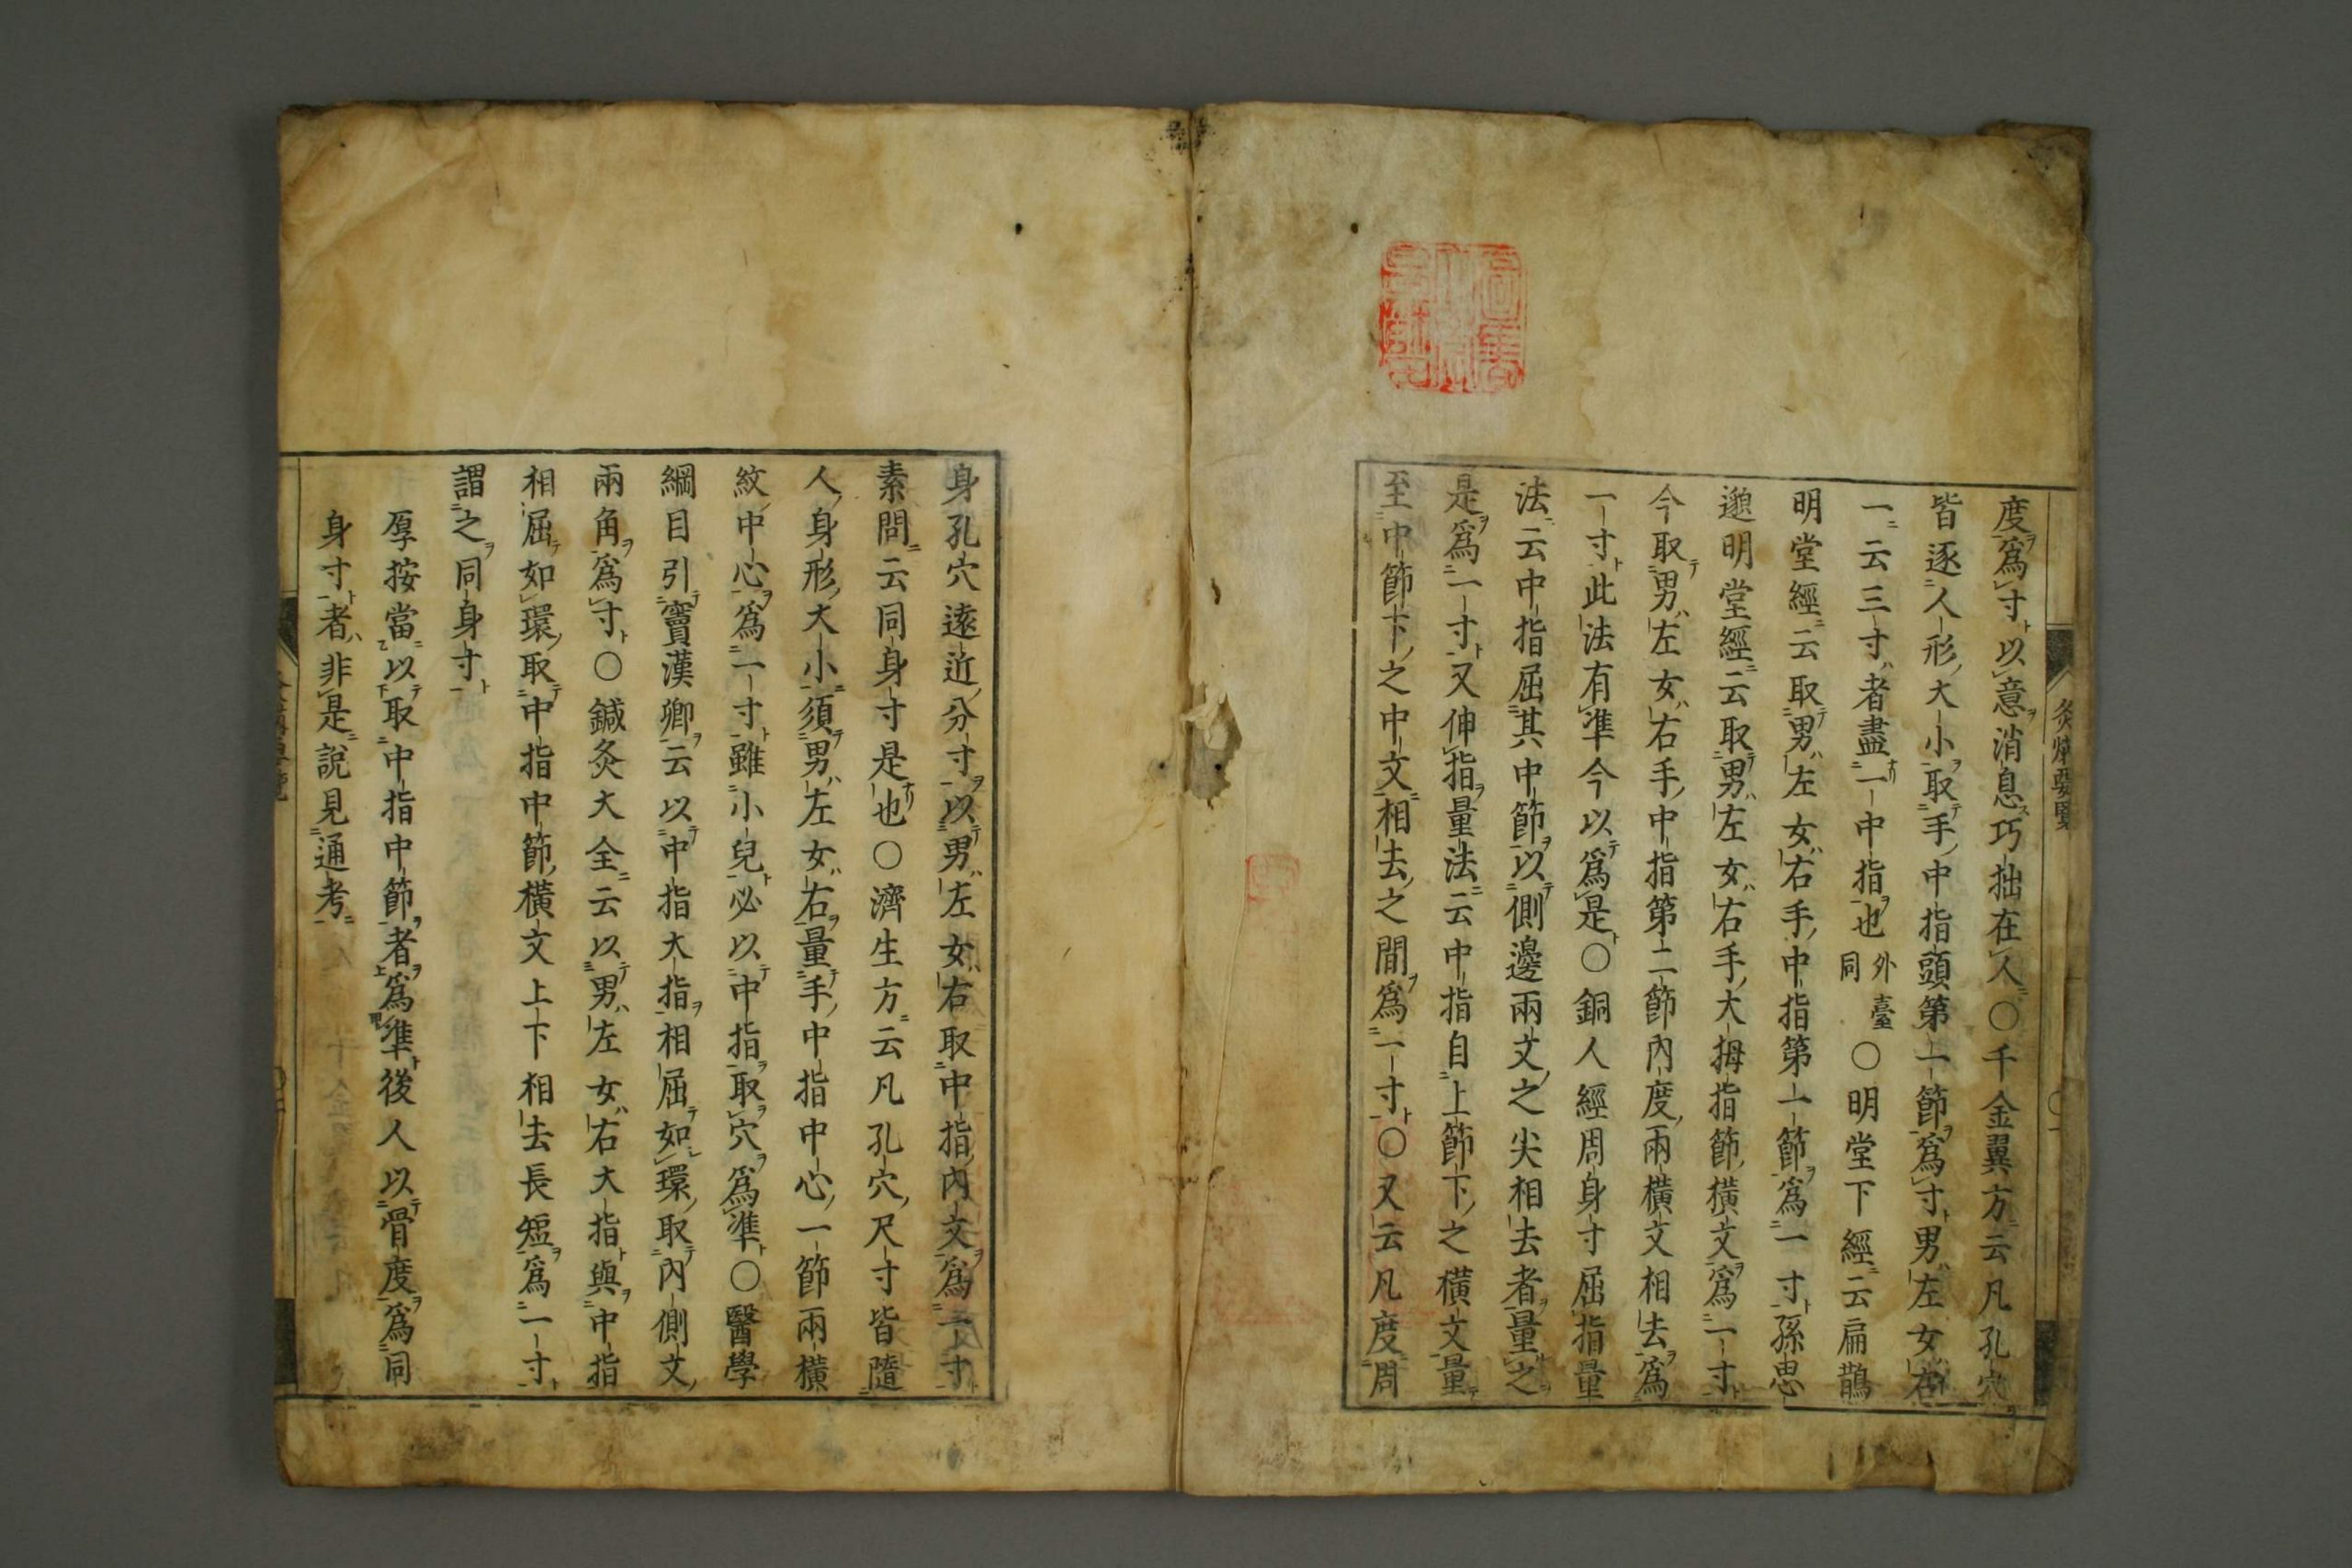 度爲寸以意消息巧拙在人○千金翼方云凡孔穴
皆逐人形大小取手中指頭第一節爲寸男左女右
一云三寸者盡一中指也外臺同○明堂下經云扁鵲
明堂經云取男左女右手中指第一節爲一寸孫思
邈明堂經云取男左女右手大拇指節橫文爲一寸
今取男左女右手中指第二節內度兩橫文相去爲
一寸此法有準今以爲是○銅人經周身寸屈指量
法云中指屈其中節以側邊兩文之尖相去者量之
是爲一寸又伸指量法云中指自上節下之橫文量
至中節下之中文相去之間爲一寸○又云凡度周
身孔穴遠近分寸以男左女右取中指內文爲一寸
素問云同身寸是也○濟生方云凡孔穴尺寸皆隨
人身形大小須男左女右量手中指中心一節兩橫
紋中心爲一寸雖小兒必以中指取穴爲準○醫學
綱目引竇漢卿云以中指大指相屈如環取內側文
兩角爲寸○鍼灸大全云以男左女右大指與中指
相屈如環取中指中節橫文上下相去長短爲一寸
謂之同身寸
厚按當以取中指中節者爲準後人以骨度爲同
身寸者非是說見通考